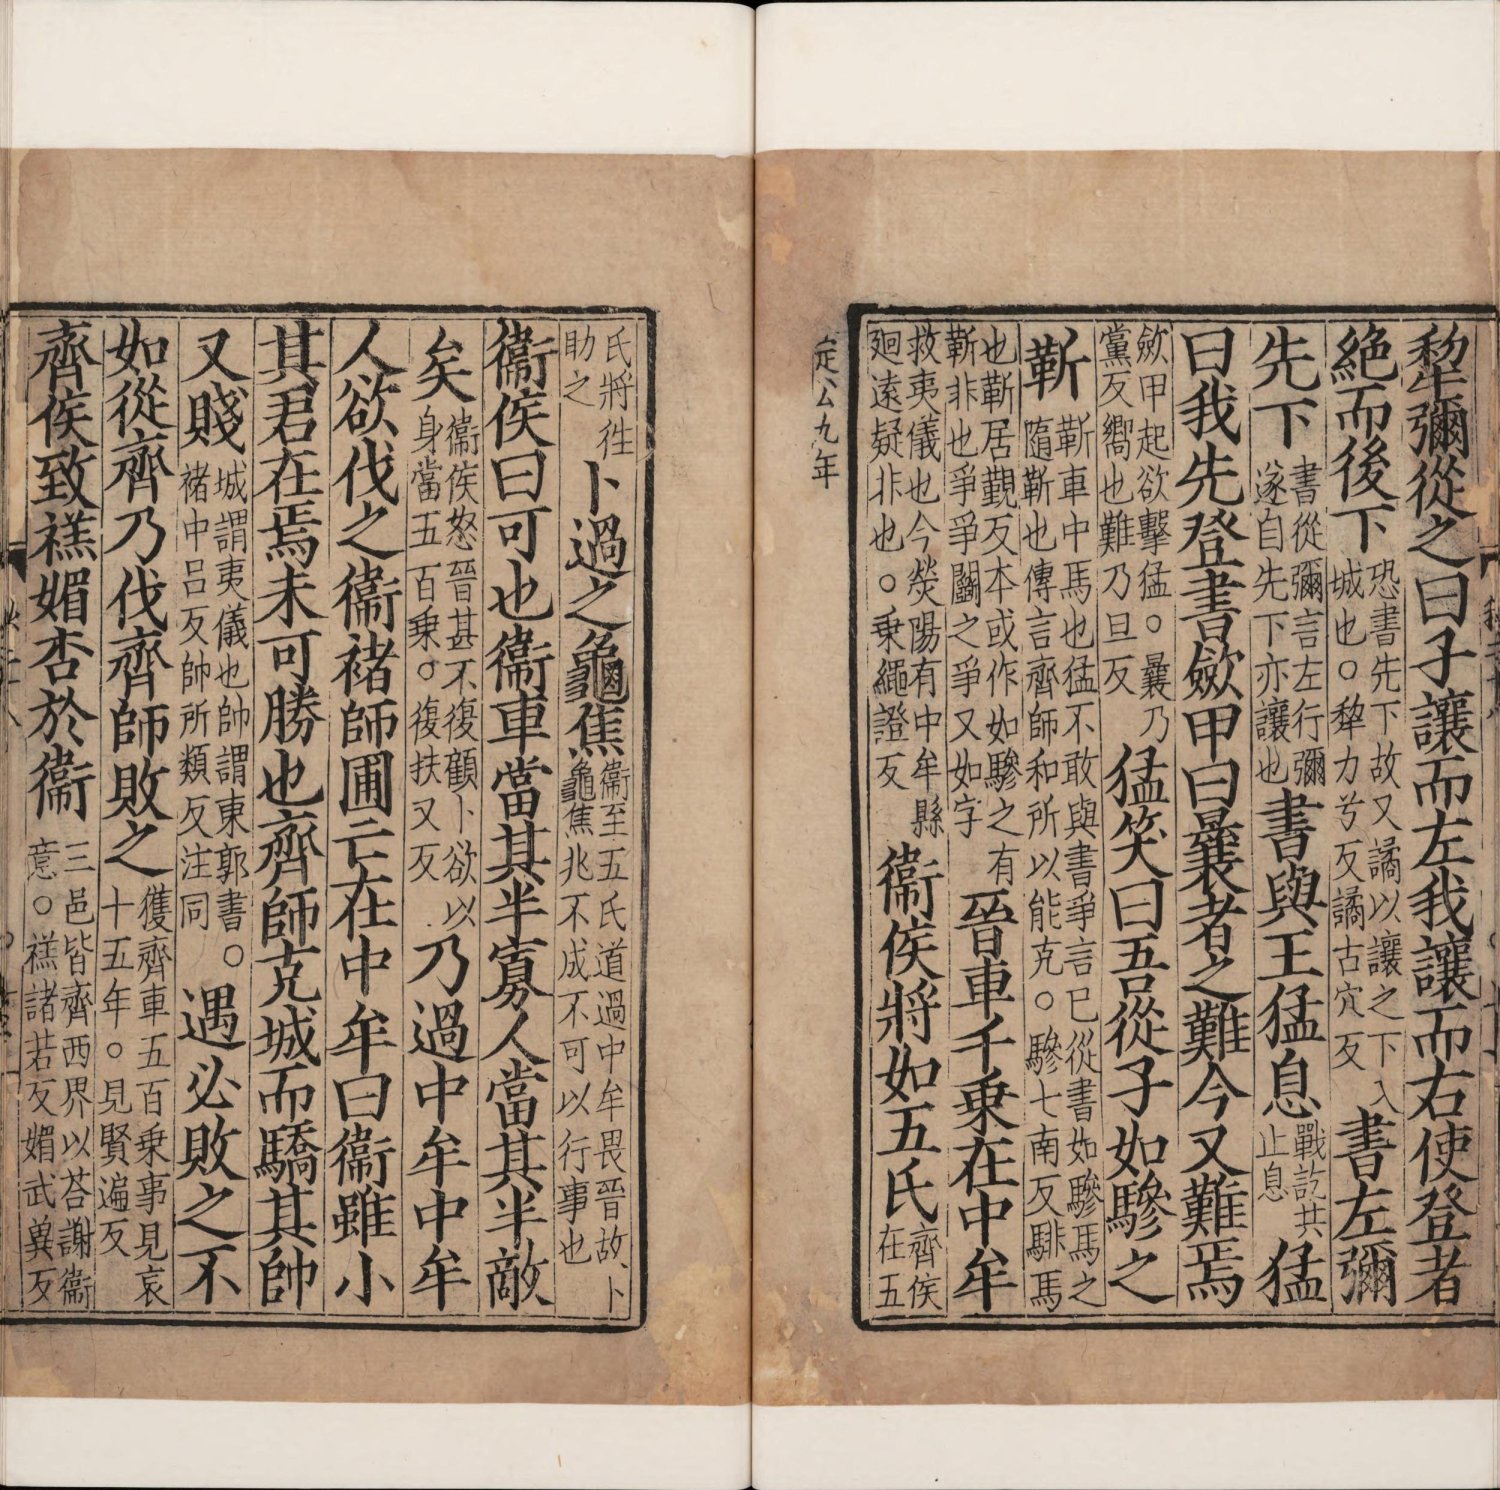 犂彌從之曰子讓而左我讓而右使登者
絶而後下恐書先下故又譎以讓之下入城也○犂力兮反譎古穴反書左彌
先下書從彌言左行彌遂自先下亦讓也書與王猛息戰訖共止息猛
曰我先登書斂甲曰曩者之難今又難焉
斂甲起欲擊猛○曩乃黨反嚮也難乃旦反猛笑曰吾從子如驂之
靳靳車中馬也猛不敢與書爭言已從書如驂馬之隨靳也傳言齊師和所以能克○驂七南反騑馬
也靳居覲反本或作如驂之有靳非也爭爭鬭之爭又如字晉車千乗在中牟
救夷儀也今熒陽有中牟縣廻遠疑非也○乗繩證反衞侯將如五氏齊侯在五
定公九年
氏將徃助之卜過之龜焦衞至五氏道過中牟畏晉故卜龜焦兆不成不可以行事也
衞侯曰可也衞車當其半寡人當其半敵
矣衞侯怒晉甚不復顧卜欲以身當五百乗○復扶又反乃過中牟中牟
人欲伐之衞褚師圃亡在中牟曰衞雖小
其君在焉未可勝也齊師克城而驕其帥
又賤城謂夷儀也帥謂東郭書○褚中呂反帥所類反注同遇必敗之不
如從齊乃伐齊師敗之獲齊車五百乗事見哀十五年○見賢遍反
齊侯致禚媚杏於衞三邑皆齊西界以荅謝衞意○禚諸若反媚武兾反